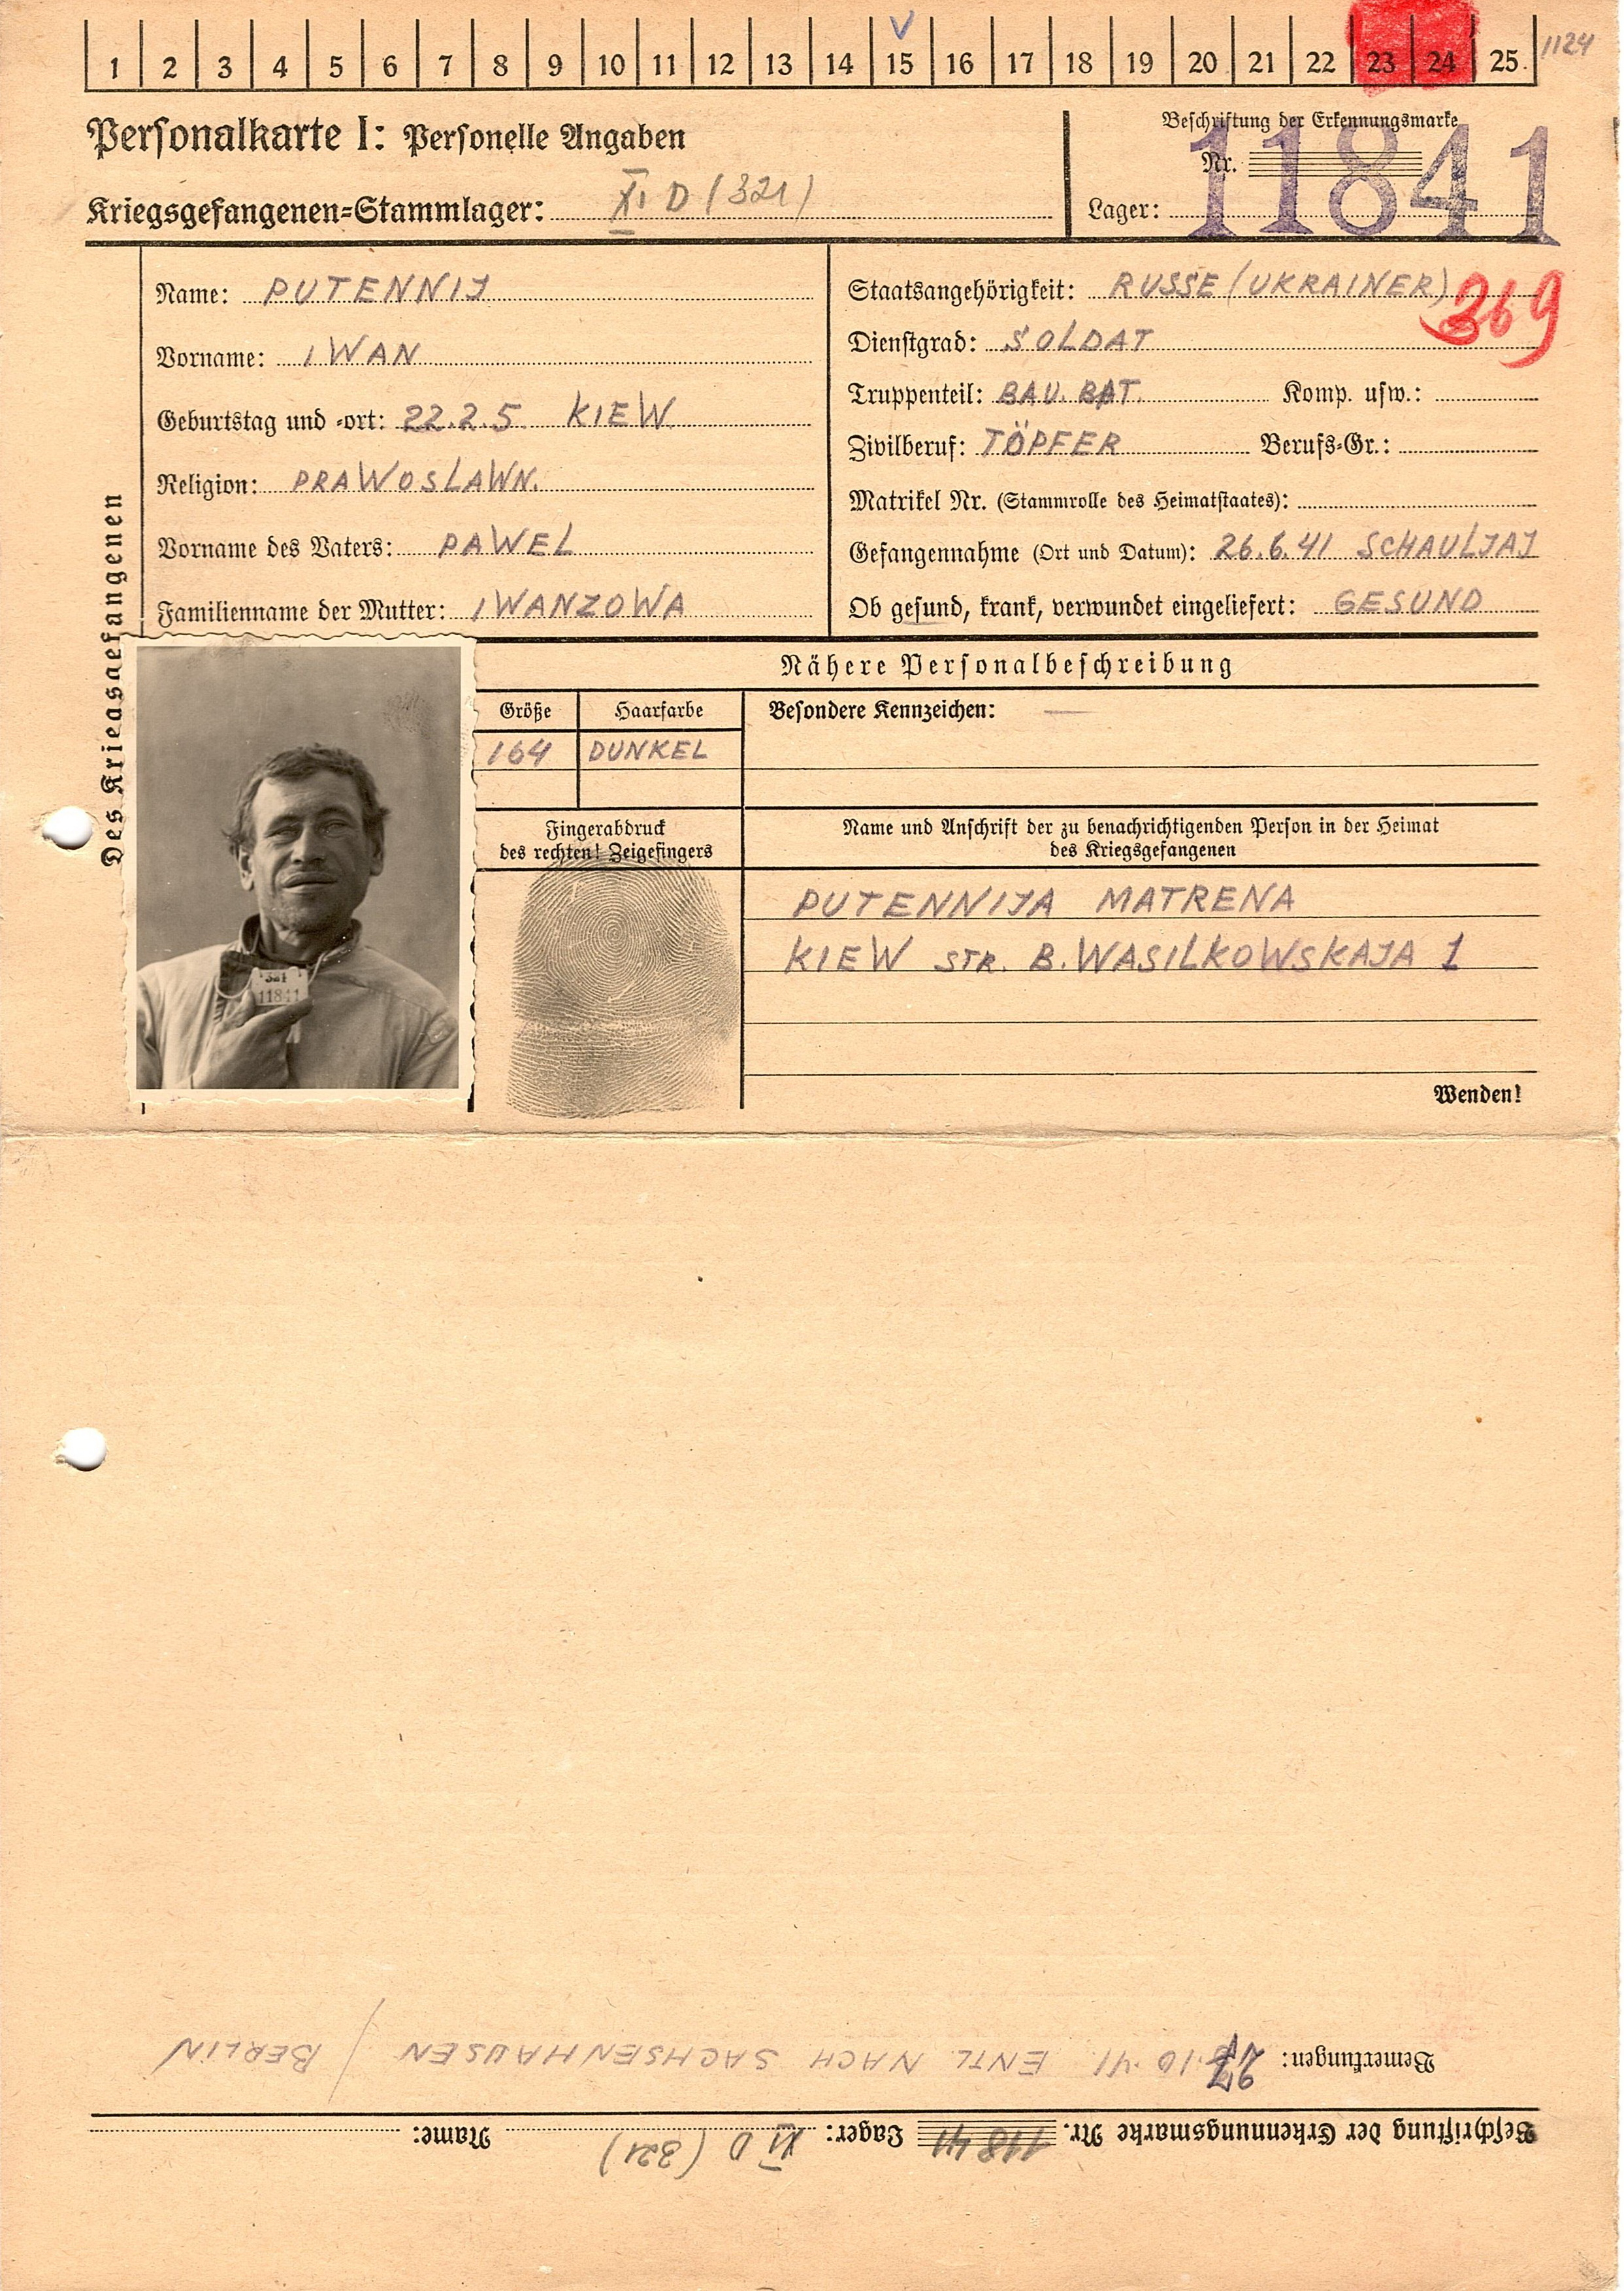 1 2 3 4 5 6 7 8 9 10 11 12 13 14 15 16 17 18 19 20 21 22 23 24 25 1124
V
Personalkarte I: Personelle Angaben
Kriegsgefangenen-Stammlager: XI D (321)
Beschriftung der Erkennungsmarke
Nr. 11841
Lager:
Des Kriegsgefangenen
Name: PUTENNIJ
Vorname: IWAN
Geburtstag und -ort: 22.2.5 KIEW
Religion: PRAWOSLAWN.
Vorname des Vaters: PAWEL
Familienname der Mutter: IWANZOWA
Staatsangehörigkeit: RUSSE (UKRAINER) 369
Dienstgrad: SOLDAT
Truppenteil: BAU. BAT. Komp. usw.:
Zivilberuf: TÖPFER Berufs-Gr.:
Matrikel Nr. (Stammrolle des Heimatstaates):
Gefangennahme (Ort und Datum): 26.6.41 SCHAULJAJ
Ob gesund, krank, verwundet eingeliefert: GESUND
Nähere Personalbeschreibung
Größe Haarfarbe Besondere Kennzeichen: —
164 DUNKEL
Fingerabdruck
des rechten! Zeigefingers
321
11841
Name und Anschrift der zu benachrichtigenden Person in der Heimat
des Kriegsgefangenen
PUTENNIJA MATRENA
KIEW STR. B. WASILKOWSKAJA 1
Wenden!
Beschriftung der Erkennungsmarke Nr. 11841 Lager: XI D (321) Name:
Bemerkungen: 27.10.41 ENTL. NACH SACHSENHAUSEN / BERLIN